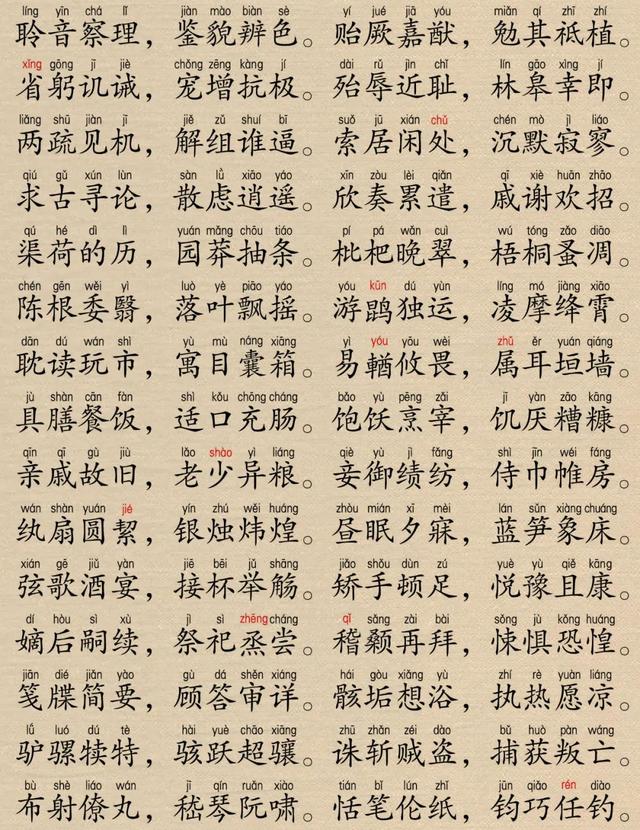 líng yīn chá lǐ jiàn mào biàn sè yí jué jiā yóu miǎn qí zhī zhí
聆音察理，鉴貌辨色。贻厥嘉猷，勉其祗植。
xǐng gōng jī jiè chǒng zēng kàng jí dài rǔ jìn chǐ lín gāo xìng jí
省躬讥诫，宠增抗极。殆辱近耻，林皋幸即。
liǎng shū jiàn jī jiě zǔ shuí bī suǒ jū xián chǔ chén mò jì liáo
两疏见机，解组谁逼。索居闲处，沉默寂寥。
qiú gǔ xún lùn sàn lǜ xiāo yáo xīn zòu lèi qiǎn qī xiè huān zhāo
求古寻论，散虑逍遥。欣奏累遣，戚谢欢招。
qú hé dì lì yuán mǎng chōu tiáo pí pá wǎn cuì wú tóng zǎo diāo
渠荷的历，园莽抽条。枇杷晚翠，梧桐蚤凋。
chén gēn wěi yì luò yè piāo yáo yóu kūn dú yùn líng mó jiàng xiāo
陈根委翳，落叶飘摇。游鹍独运，凌摩绛霄。
dān dú wán shì yù mù náng xiāng yì yóu yōu wèi zhǔ ěr yuán qiáng
耽读玩市，寓目囊箱。易輶攸畏，属耳垣墙。
jù shàn cān fàn shì kǒu chōng cháng bǎo yù pēng zǎi jī yàn zāo kāng
具膳餐饭，适口充肠。饱饫烹宰，饥厌糟糠。
qīn qī gù jiù lǎo shào yì liáng qiè yù jì fǎng shì jīn wéi fáng
亲戚故旧，老少异粮。妾御绩纺，侍巾帷房。
wán shàn yuán jié yín zhú wěi huáng zhòu mián xī mèi lán sǔn xiàng chuáng
纨扇圆絜，银烛炜煌。昼眠夕寐，蓝笋象床。
xián gē jiǔ yàn jiē bēi jǔ shāng jiǎo shǒu dùn zú yuè yù qiě kāng
弦歌酒宴，接杯举觞。矫手顿足，悦豫且康。
dí hòu sì xù jì sì zhēng cháng qǐ sǎng zài bài sǒng jù kǒng huáng
嫡后嗣续，祭祀烝尝。稽颡再拜，悚惧恐惶。
jiān dié jiǎn yào gù dá shěn xiáng hái gòu xiǎng yù zhí rè yuàn liáng
笺牒简要，顾答审详。骸垢想浴，执热愿凉。
lǘ luó dú tè hài yuè chāo xiāng zhū zhǎn zéi dào bǔ huò pàn wáng
驴骡犊特，骇跃超骧。诛斩贼盗，捕获叛亡。
bù shè liáo wán jī qín ruǎn xiào tián bǐ lún zhǐ jūn qiǎo rén diào
布射僚丸，嵇琴阮啸。恬笔伦纸，钧巧任钓。